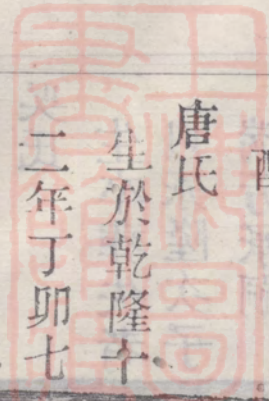 配
唐氏
生於乾隆十
二年丁卯七